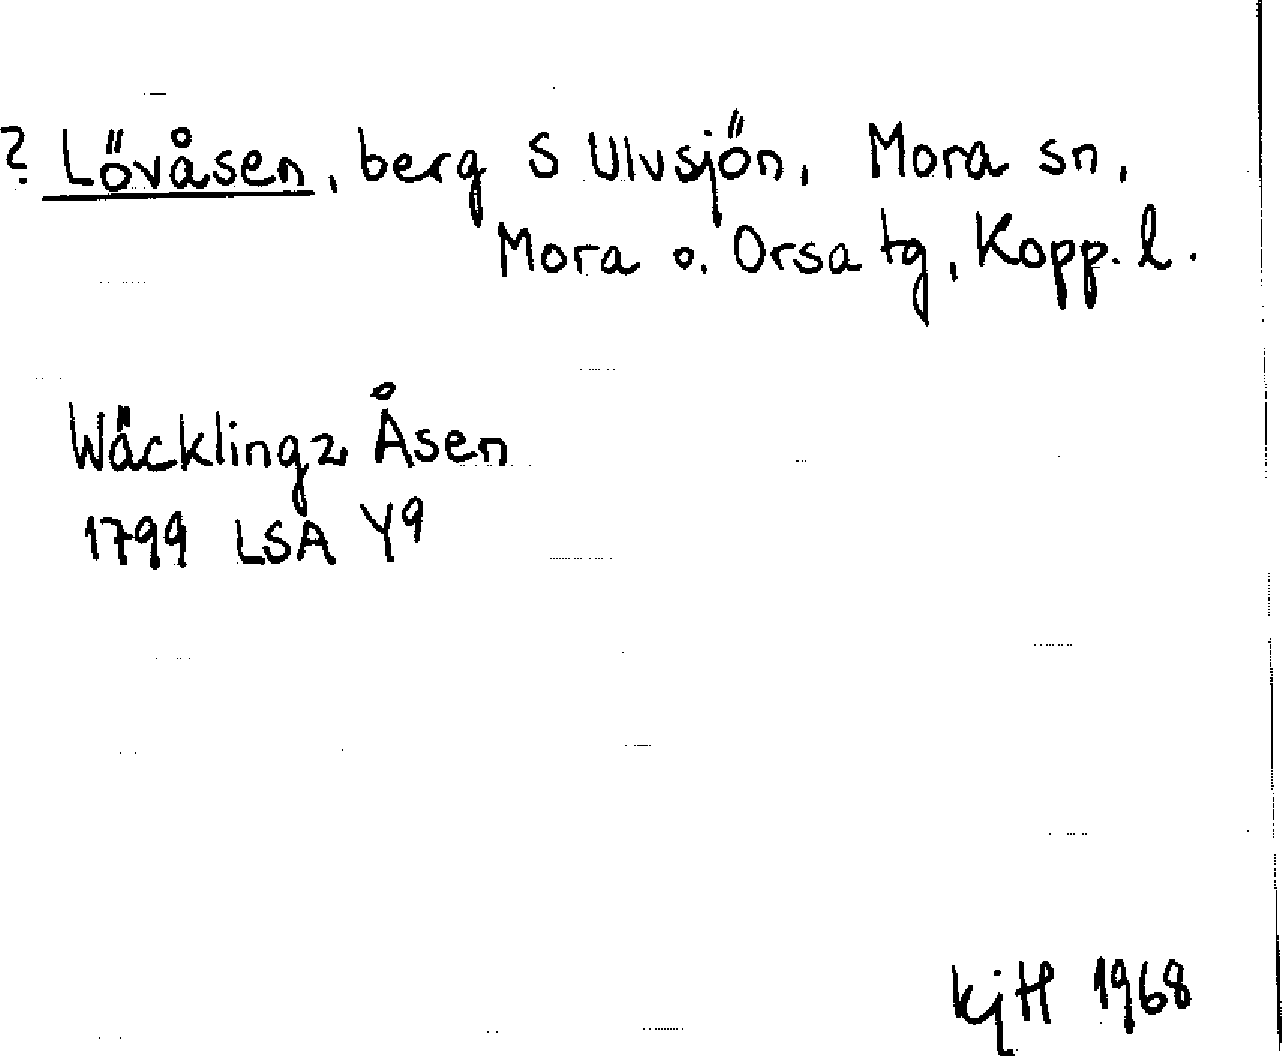 ? Lövåsen, berg S Ulvsjön, Mora sn,
Mora o. Orsa tg, Kopp. l.
Wäcklingz Åsen
1799 LSA Y9
KjH 1968